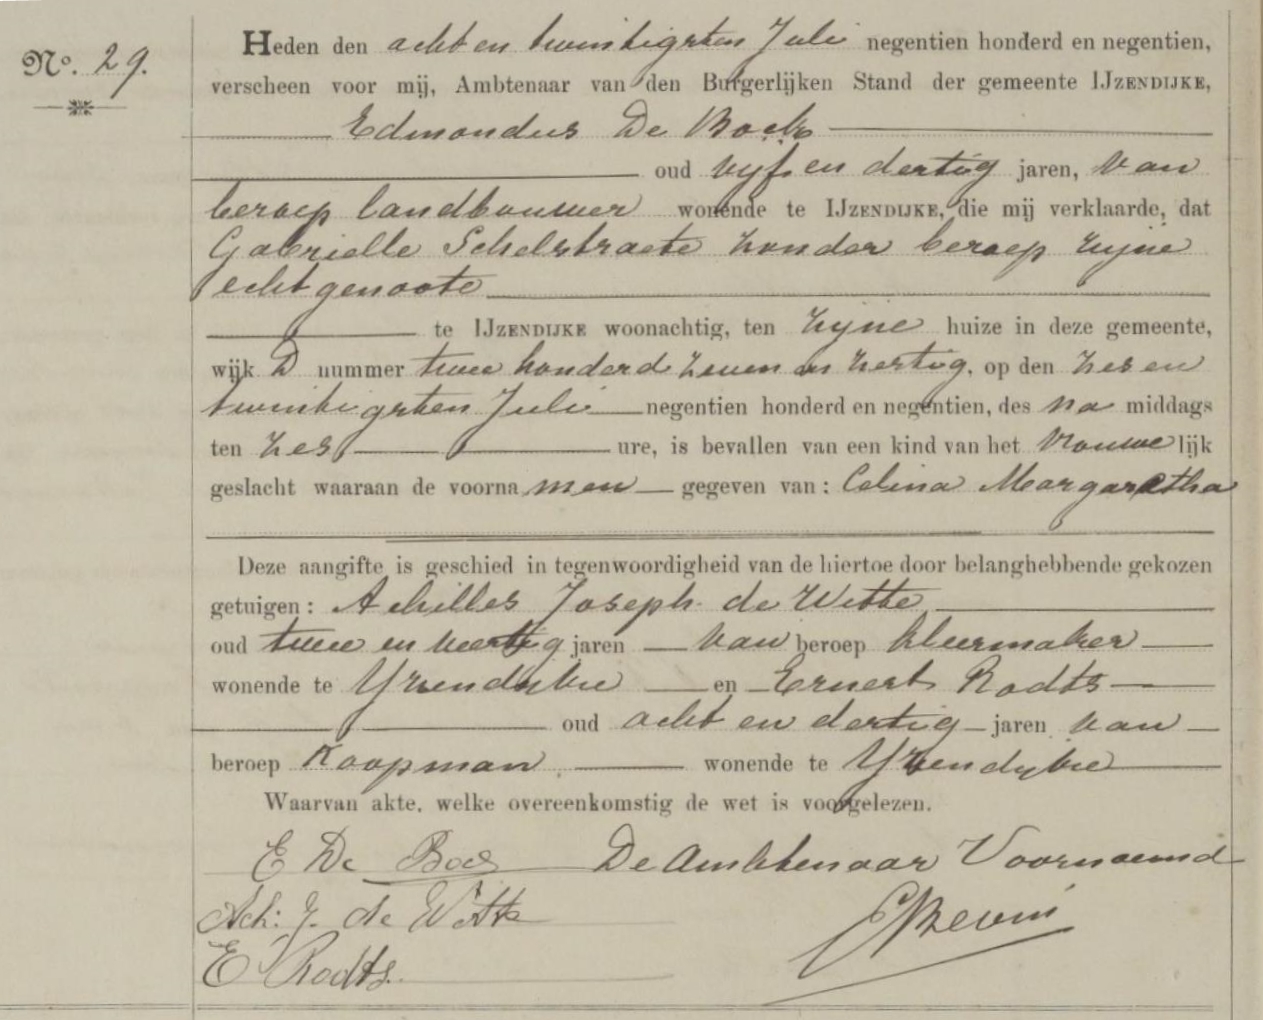 No. 29.
Heden den acht en twintigsten Juli negentien honderd en negentien,
verscheen voor mij, Ambtenaar van den Burgerlijken Stand der gemeente IJZENDIJKE,
Edmondus De Bock
oud vyf en dertig jaren, van
beroep landbouwer wonende te IJZENDIJKE, die mij verklaarde, dat
Gabrielle Schelstraete zonder beroep zyne
echtgenoote
te IJZENDIJKE woonachtig, ten zyne huize in deze gemeente,
wijk D nummer twee honderd zeven en zestig, op den zes en
twintigsten Juli negentien honderd en negentien, des na middags
ten zes ure, is bevallen van een kind van het vrouwelijk
geslacht waaraan de voornamen gegeven van: Celina Margaretha
Deze aangifte is geschied in tegenwoordigheid van de hiertoe door belanghebbende gekozen
getuigen: Achilles Joseph de Witte
oud twee en veertig jaren van beroep kleermaker
wonende te Yzendyke en Ernest Rodts
oud acht en dertig jaren van
beroep Koopman wonende te Yzendyke
Waarvan akte, welke overeenkomstig de wet is voorgelezen.
E De Bock De Ambtenaar Voornoemd
Ach: J. de Witte
E Rodts.